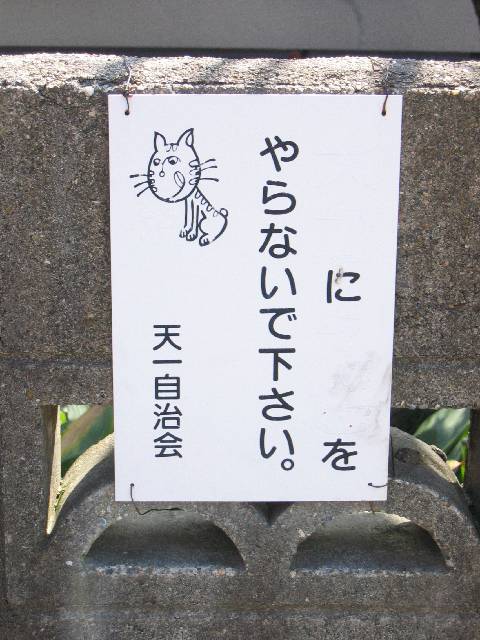 に を
やらないで下さい。
天一自治会